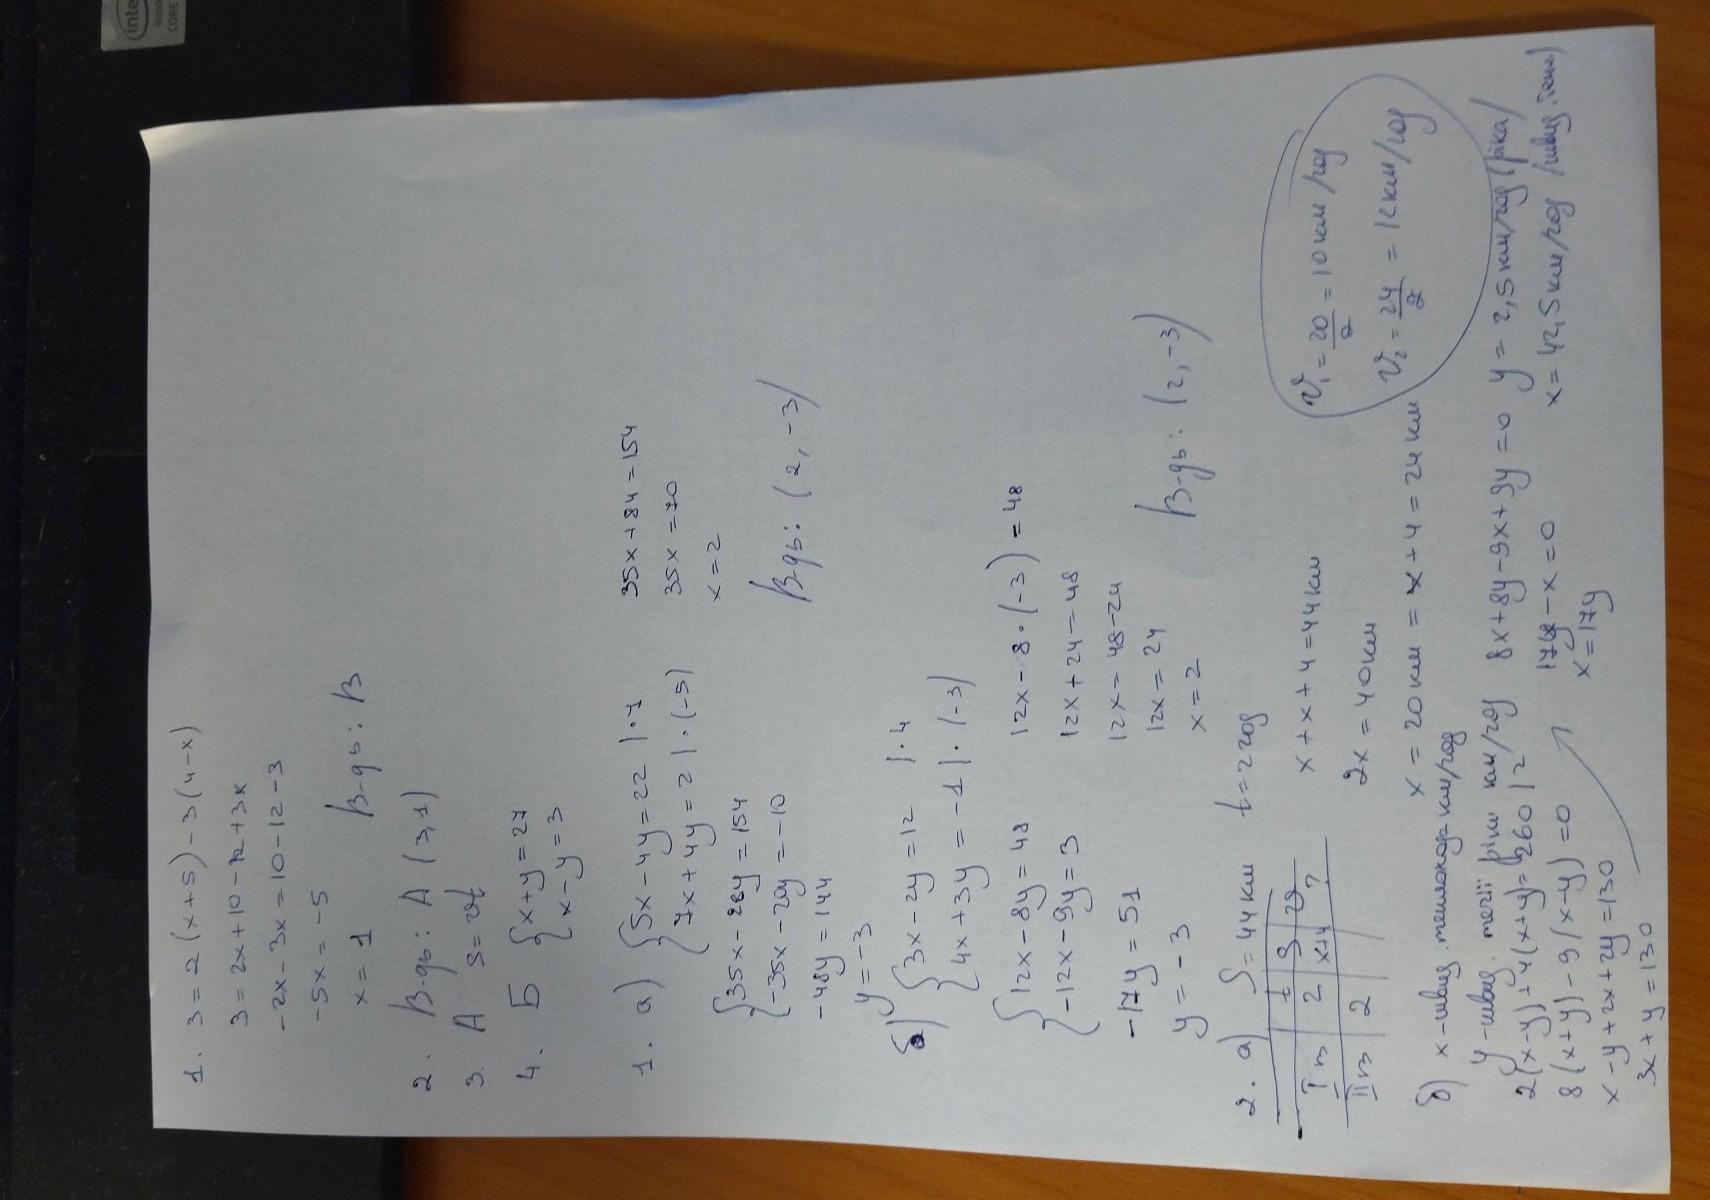 1. 3 = 2(x+5) - 3(4-x)
3 = 2x + 10 - 12 + 3x
-2x - 3x = 10 - 12 - 3
-5x = -5
x = 1 В-дь: В
2. В-дь: А (3,1)
3. А S = vt
4. Б { x+y = 27
x - y = 3
1. а) { 5x - 4y = 22 | · 7
7x + 4y = 2 | · (-5)
{ 35x - 28y = 154
-35x - 20y = -10
-48y = 144
y = -3
35x + 84 = 154
35x = 70
x = 2
В-дь: (2, -3)
б) { 3x - 2y = 12 | · 4
4x + 3y = -1 | · (-3)
{ 12x - 8y = 48
-12x - 9y = 3
-17y = 51
y = -3
12x - 8 · (-3) = 48
12x + 24 = 48
12x = 48 - 24
12x = 24
x = 2
В-дь: (2, -3)
2. а) S = 44 км t = 2 год
t S v
I п 2 x+4 ?
II п 2
x + x + 4 = 44 км
2x = 40 км
x = 20 км = x + 4 = 24 км
v₁ = 20/2 = 10 км/год
v₂ = 24/2 = 12 км/год
б) x - швид. теплохода км/год
y - швид. течії ріки км/год
2(x-y) + 4(x+y) = 260 | 2
8(x+y) - 9(x-y) = 0
x - y + 2x + 2y = 130
3x + y = 130
8x + 8y - 9x + 9y = 0
17y - x = 0
x = 17y
y = 2,5 км/год (ріка)
x = 42,5 км/год (швид. тепл)
inte
inside
CORE